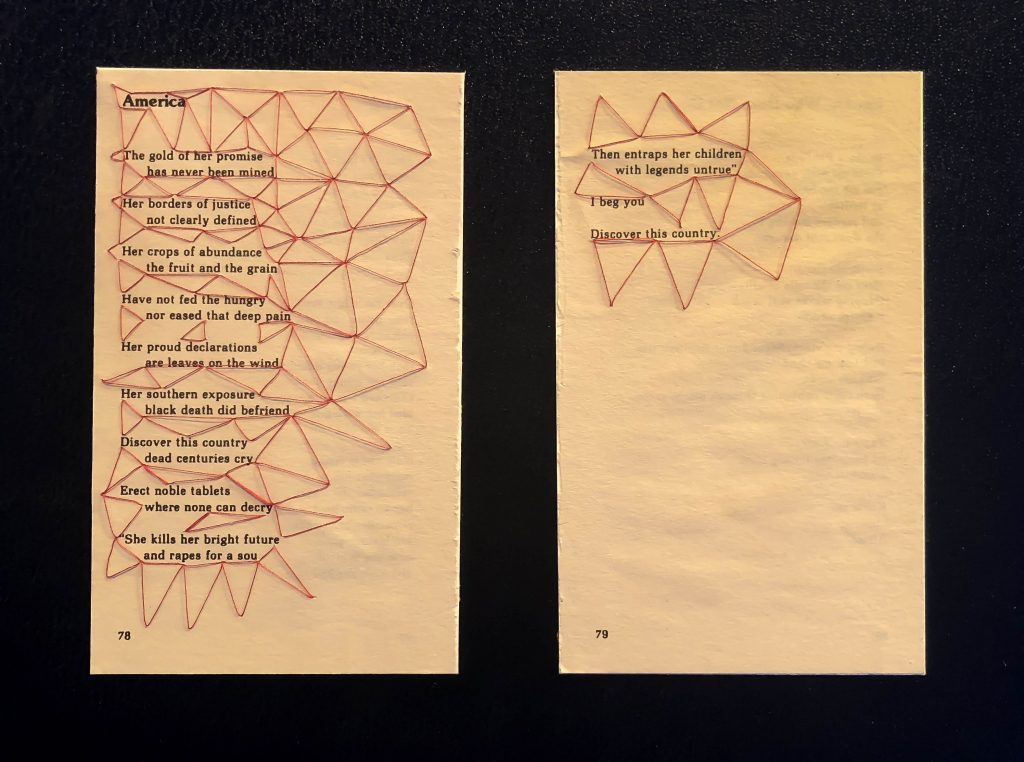 America
The gold of her promise
has never been mined
Her borders of justice
not clearly defined
Her crops of abundance
the fruit and the grain
Have not fed the hungry
nor eased that deep pain
Her proud declarations
are leaves on the wind
Her southern exposure
black death did befriend
Discover this country
dead centuries cry
Erect noble tablets
where none can decry
"She kills her bright future
and rapes for a sou
78
Then entraps her children
with legends untrue"
I beg you
Discover this country.
79